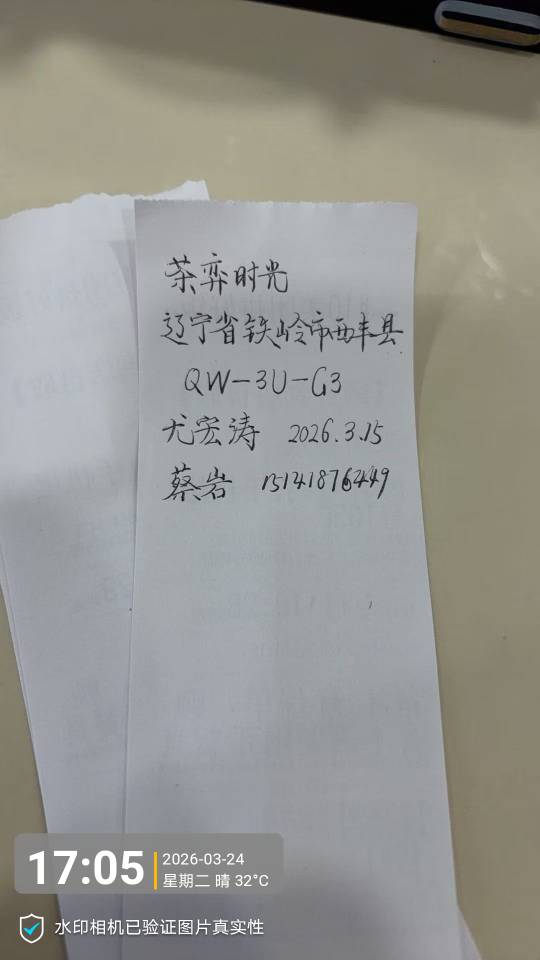 茶弈时光
辽宁省铁岭市西丰县
QW-3U-G3
尤宏涛 2026.3.15
蔡岩 15141876449
17:05
2026-03-24
星期二 晴 32°C
水印相机已验证图片真实性